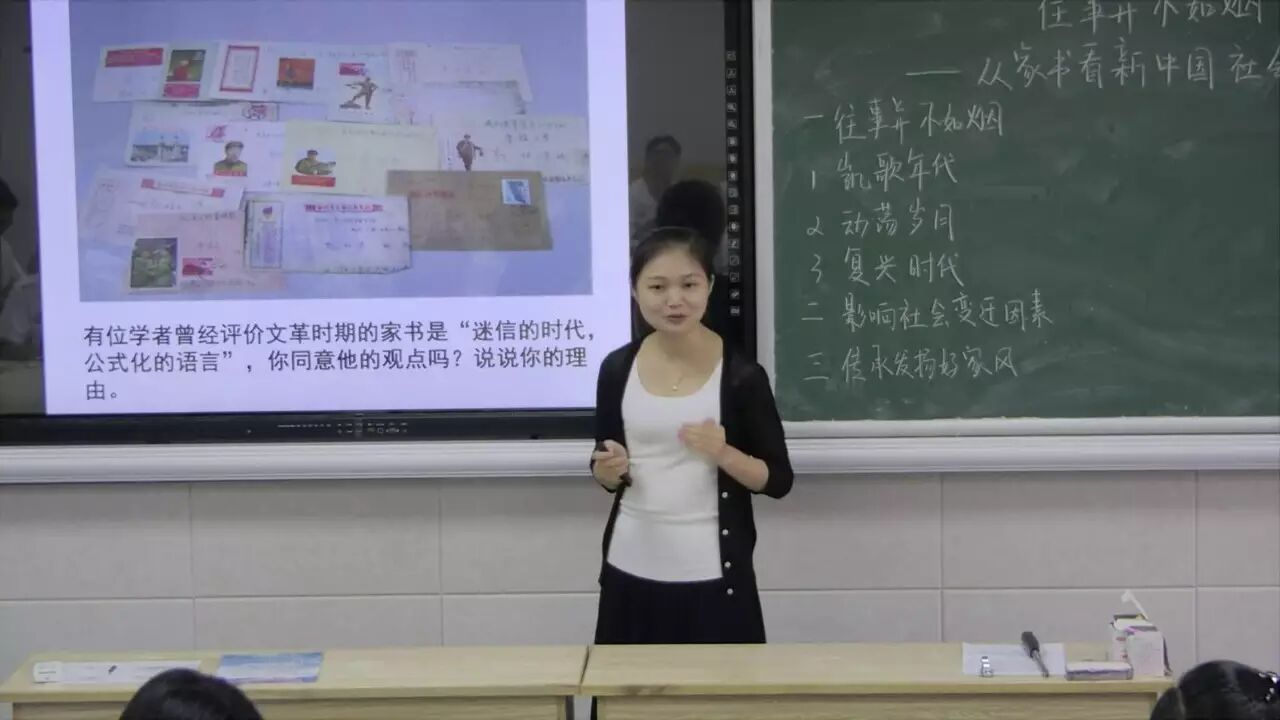 有位学者曾经评价文革时期的家书是“迷信的时代，
公式化的语言”，你同意他的观点吗？说说你的理
由。
往事并不如烟
——从家书看新中国社会
一 往事并不如烟
1 凯歌年代
2 动荡岁月
3 复兴时代
二 影响社会变迁因素
三 传承发扬好家风